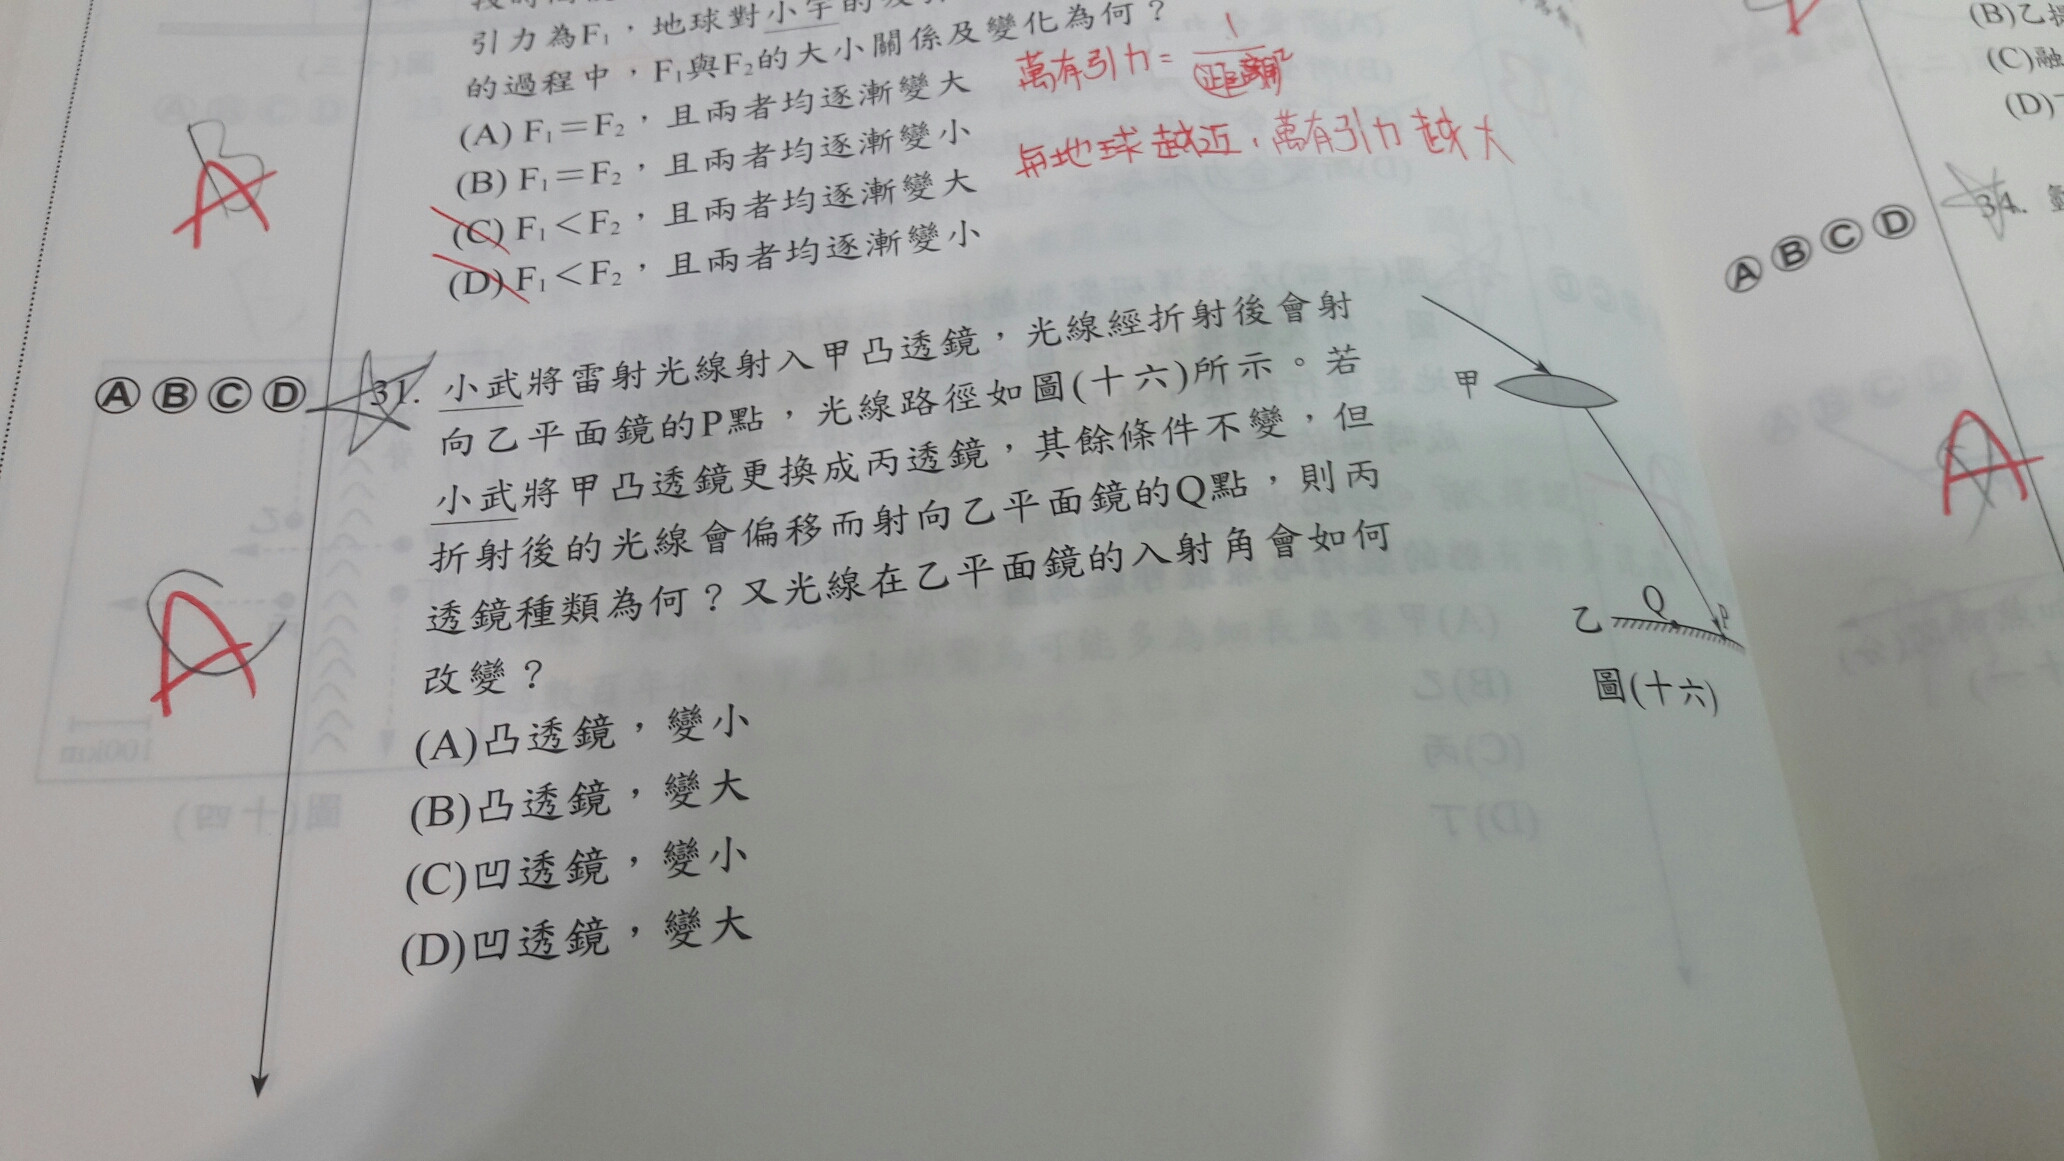 引力為F₁，地球對小宇的
的過程中，F₁與F₂的大小關係及變化為何？
(A) F₁＝F₂，且兩者均逐漸變大
(B) F₁＝F₂，且兩者均逐漸變小
(C) F₁＜F₂，且兩者均逐漸變大
(D) F₁＜F₂，且兩者均逐漸變小
萬有引力＝1/距離²
與地球越近，萬有引力越大
B
A
Ⓐ Ⓑ Ⓒ Ⓓ
31. 小武將雷射光線射入甲凸透鏡，光線經折射後會射
向乙平面鏡的P點，光線路徑如圖(十六)所示。若
小武將甲凸透鏡更換成丙透鏡，其餘條件不變，但
折射後的光線會偏移而射向乙平面鏡的Q點，則丙
透鏡種類為何？又光線在乙平面鏡的入射角會如何
改變？
(A)凸透鏡，變小
(B)凸透鏡，變大
(C)凹透鏡，變小
(D)凹透鏡，變大
C
A
甲
乙
Q
P
圖(十六)
(B)乙
(C)融
(D)
Ⓐ Ⓑ Ⓒ Ⓓ
34.
A